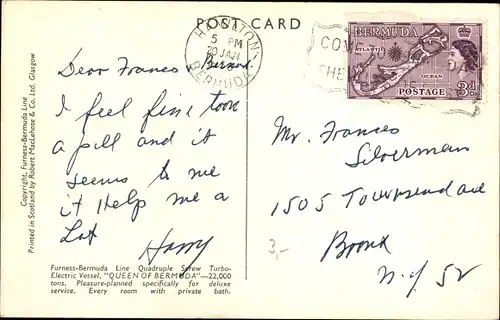 POST CARD
HAMILTON
5 PM
20 JAN
BERMUDA
COME
THE
BERMUDA
ATLANTIC
OCEAN
POSTAGE 3d.
Dear Frances & Bernard
I feel fine toon
a pill and it
seems to me
it Help me a
Lot
Harry
Mr. Frances
Silverman
1505 Townsend ave
Bronx
N.Y 52
3,-
Furness-Bermuda Line Quadruple Screw Turbo-
Electric Vessel, "QUEEN OF BERMUDA"—22,000
tons. Pleasure-planned specifically for deluxe
service. Every room with private bath.
Copyright, Furness-Bermuda Line
Printed in Scotland by Robert MacLehose & Co. Ltd. Glasgow